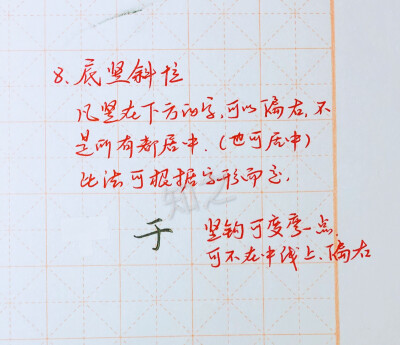 8.底竖斜拉
凡竖在下方的字,可以偏右,不
是所有都居中.(也可居中)
比法可根据字形而定.
于
竖钩可变弯一点.
可不在中线上、偏右
知之